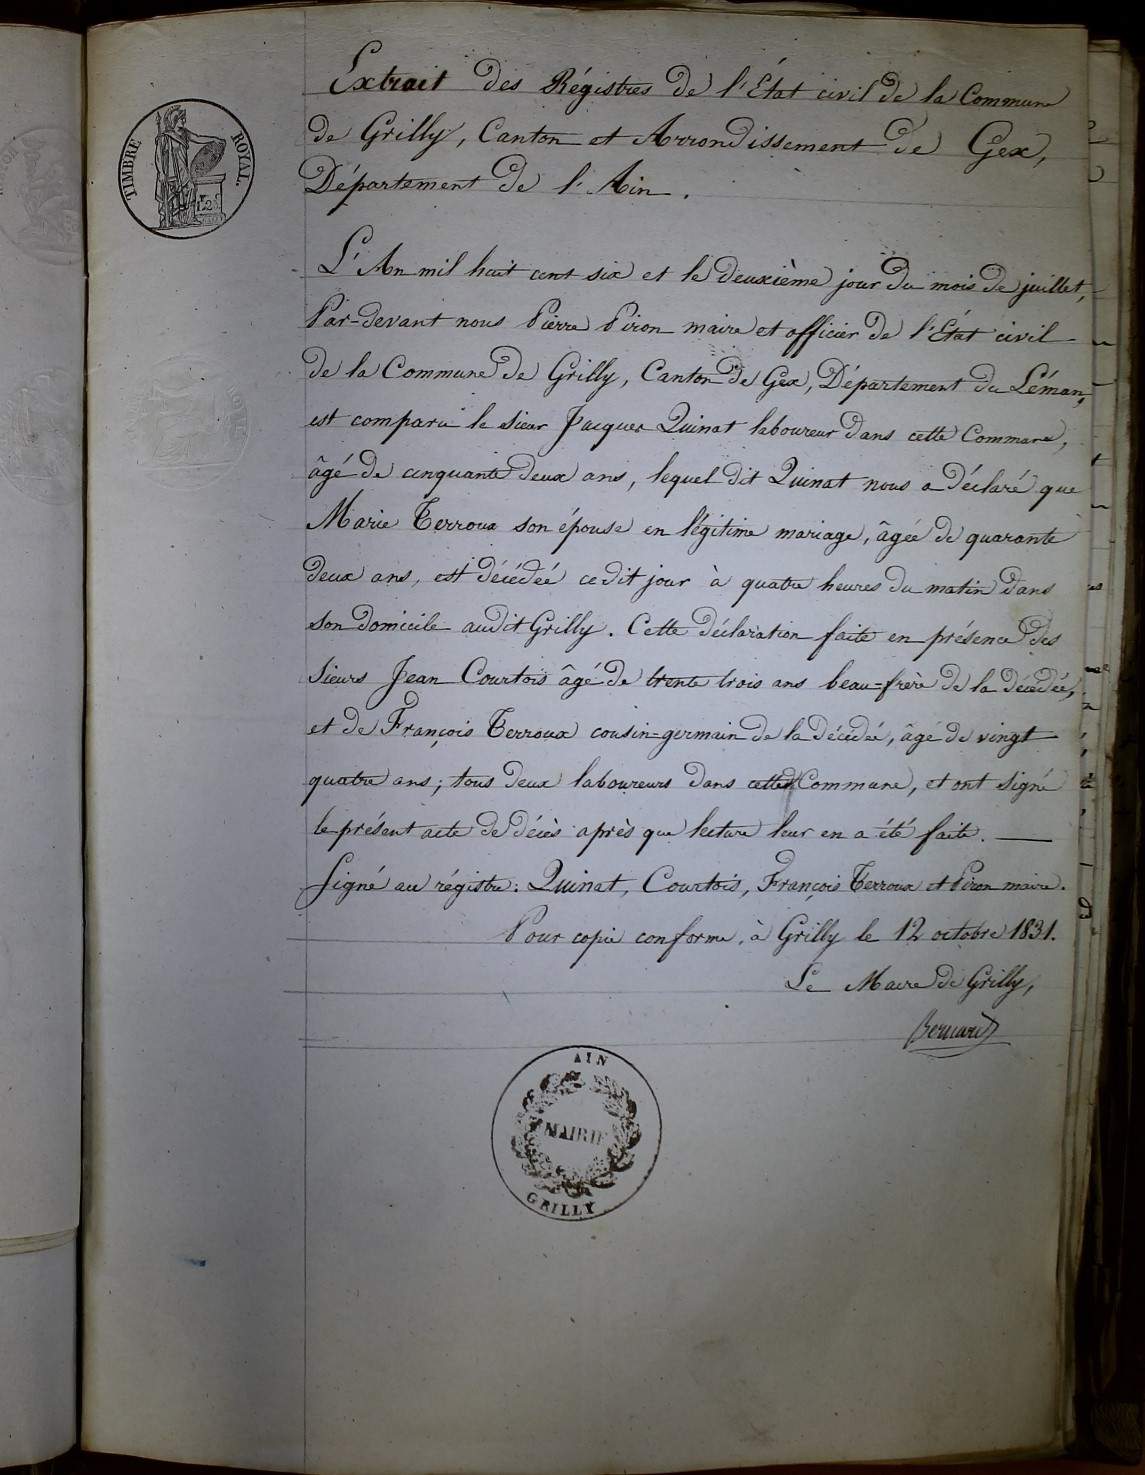 TIMBRE ROYAL.
Extrait des Régistres de l'État civil de la Commune
de Grilly, Canton et Arrondissement de Gex,
Département de l'Ain.
L'An mil huit cent six et le deuxième jour du mois de juillet,
Par-devant nous Pierre Piron maire et officier de l'État civil
de la Commune de Grilly, Canton de Gex, Département du Léman,
est comparu le sieur Jacques Quinat laboureur dans cette Commune,
âgé de cinquante deux ans, lequel dit Quinat nous a déclaré que
Marie Terroux son épouse en légitime mariage, âgée de quarante
deux ans, est décédée ce dit jour à quatre heures du matin dans
son domicile audit Grilly. Cette déclaration faite en présence des
sieurs Jean Courtois âgé de trente trois ans beau=frère de la décédée,
et de François Terroux cousin=germain de la décédée, âgé de vingt
quatre ans; tous deux laboureurs dans cette Commune, et ont signé
le présent acte de décès après que lecture leur en a été faite.
Signé au régistre: Quinat, Courtois, François Terroux et Piron maire.
Pour copie conforme, à Grilly le 12 octobre 1831.
Le Maire de Grilly,
Bernard
AIN
MAIRIE
GRILLY